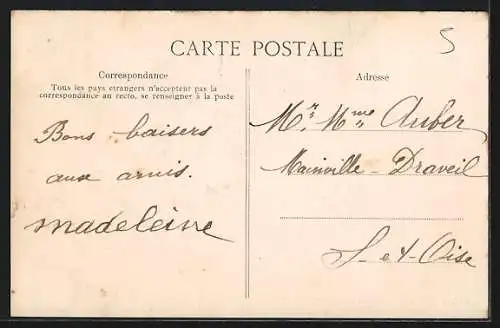 5
CARTE POSTALE
Correspondance
Tous les pays étrangers n'acceptent pas la
correspondance au recto, se renseigner à la poste
Bons baisers
aux amis.
Madeleine
Adresse
Mr Mme Auber
Mainville - Draveil
S - et - Oise